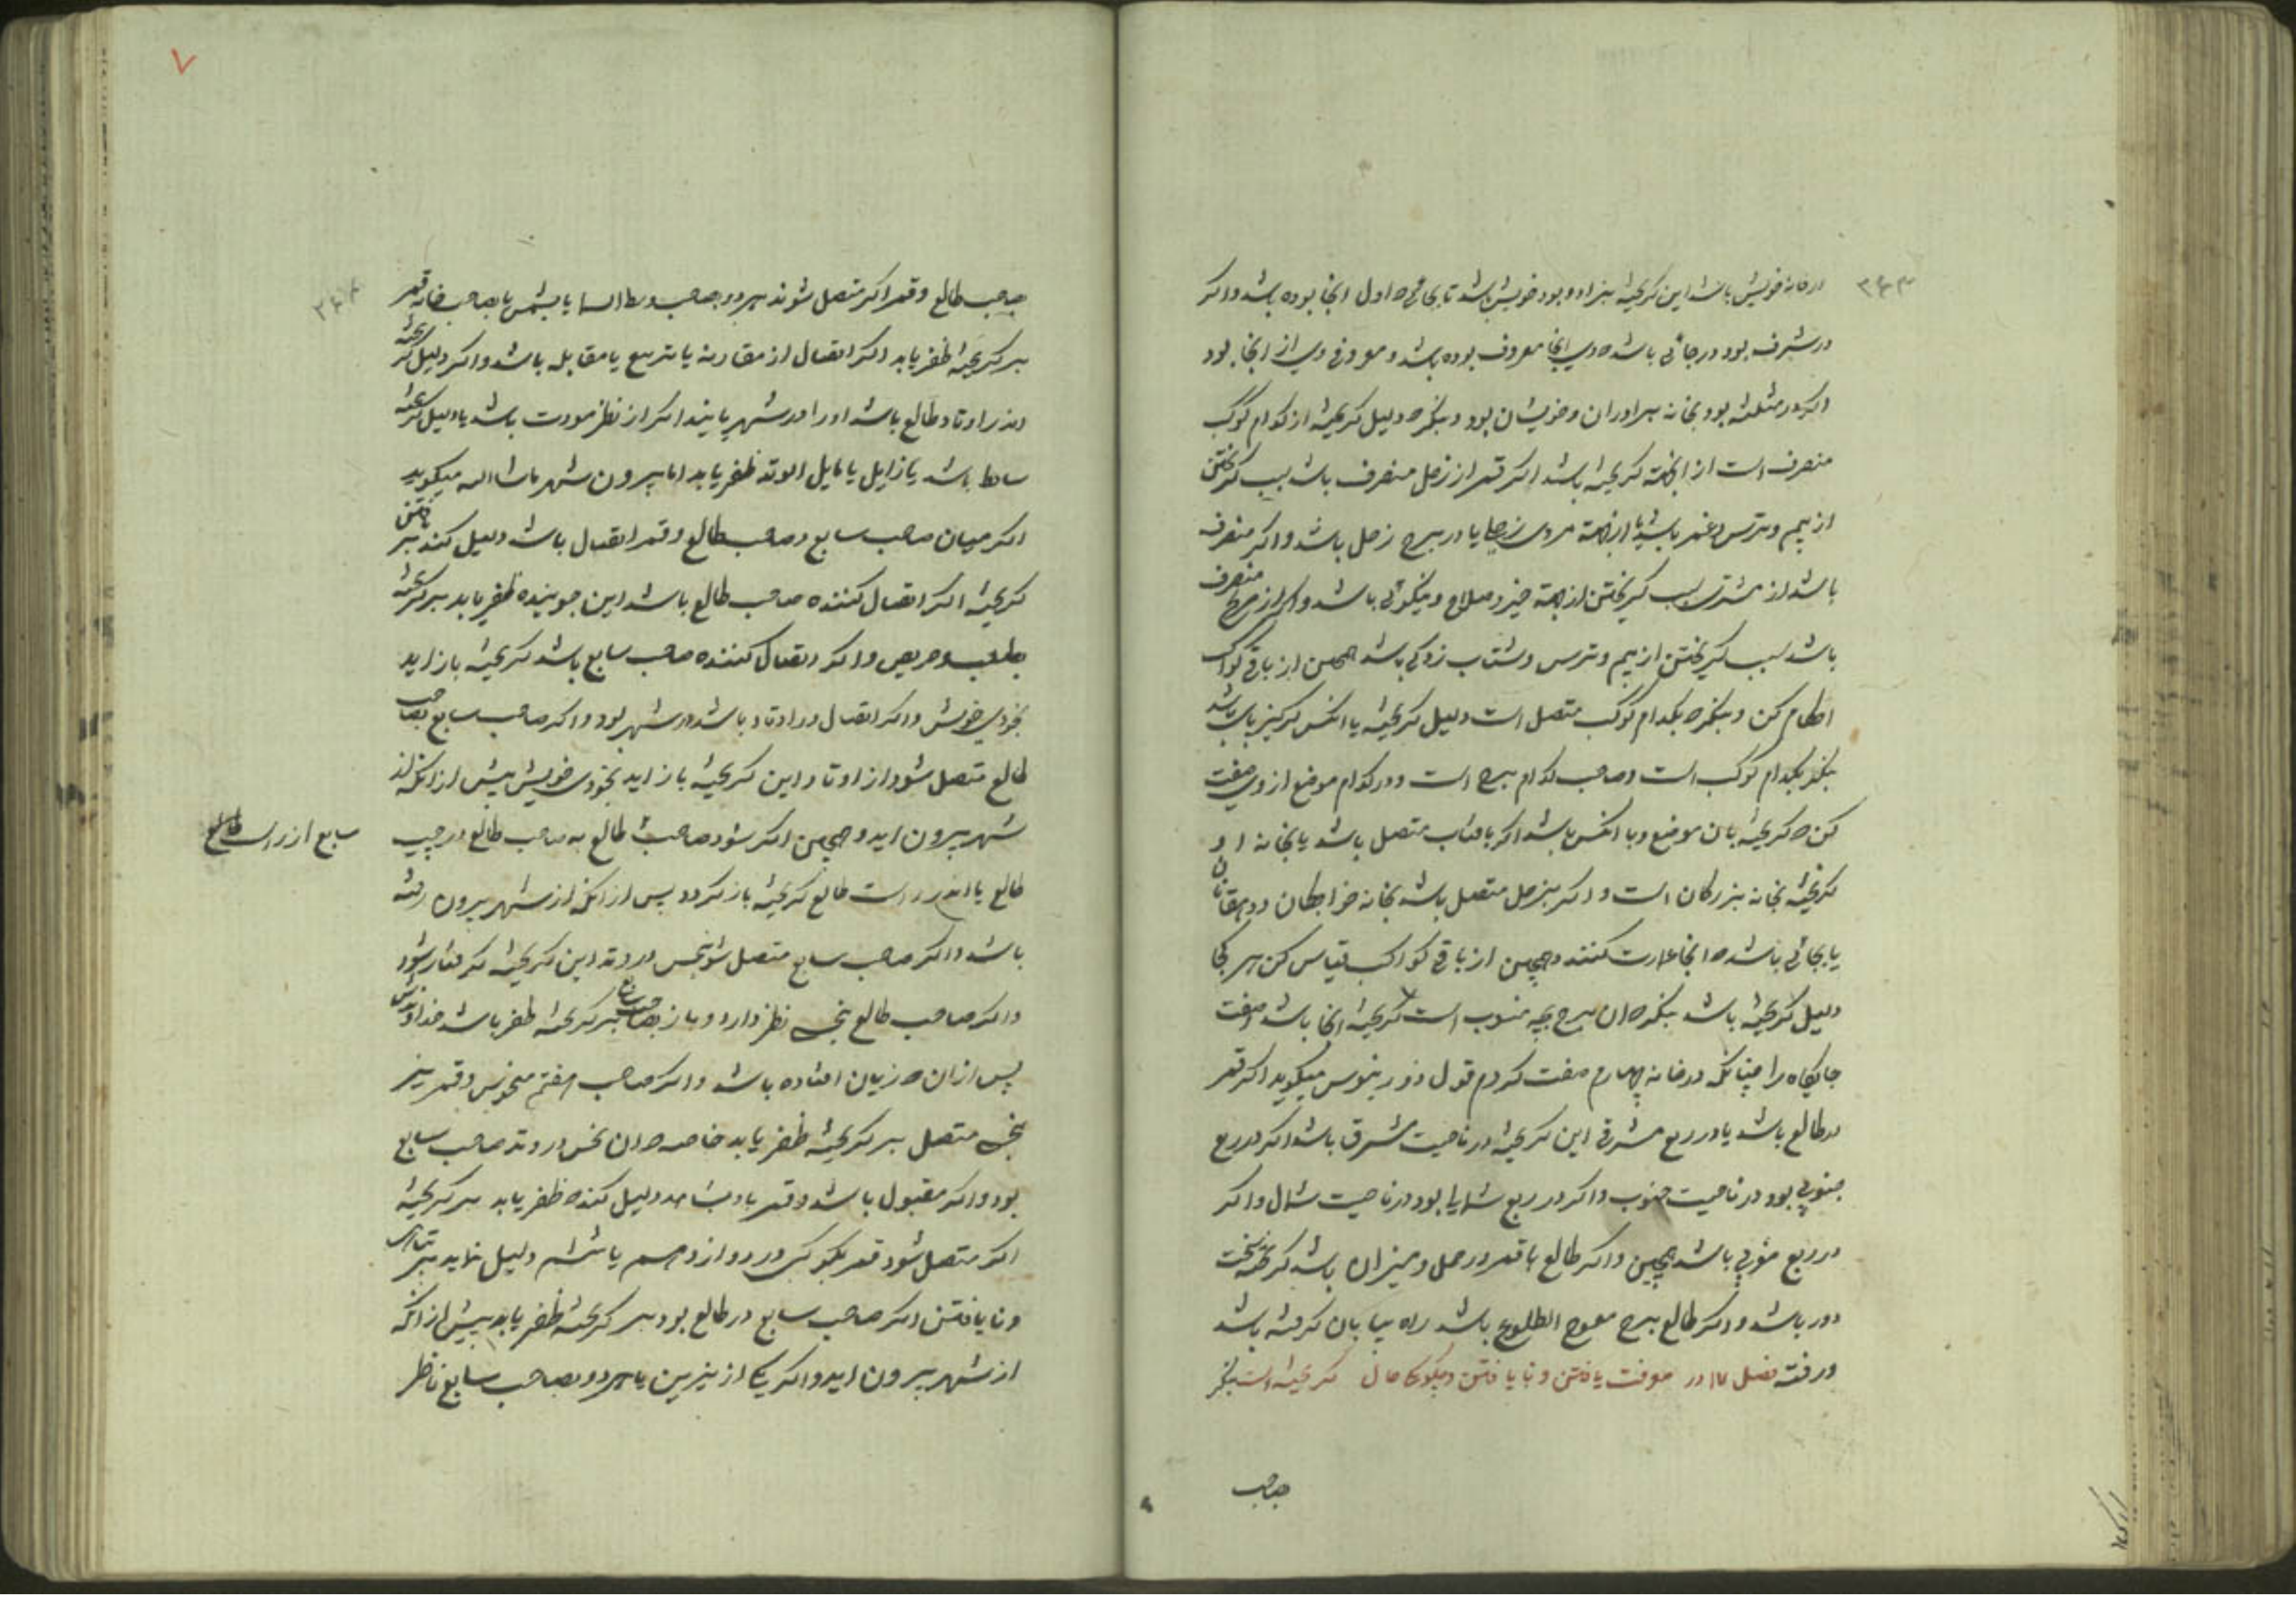 ۲۴۳
در خانه خویش باشد این گریخته بنزاد و بود خویش باشد تا بجائی که اول انجا بوده باشد و اگر
در شرف بود در جائی باشد که وی انجا معروف بوده باشد و معروفی وی از انجا بود
و اگر در مثلثه بود بخانه برادران و خویشان بود و بنگر که دلیل گریخته از کدام کوکب
منصرف است از انجهة گریخته باشد اگر قمر از زحل منصرف باشد سبب گریختن
از بیم و ترس و غم باشد یا از جهة مردی زحلی یا در برج زحل باشد و اگر منصرف
باشد از مشتری سبب گریختن از جهة خیر و صلاح و نیکوئی باشد و اگر از مریخ منصرف
باشد سبب گریختن از بیم و ترس و شتاب زدگی باشد همچنین از باقی کواکب
احکام کن و بنگر که بکدام کوکب متصل است دلیل گریخته یا انکس که گریز پای باشد
بنگر بکدام کوکب است و صاحب کدام برج است و در کدام موضع از وی صفت
کن که گریخته بان موضع و با انکس باشد اگر بافتاب متصل باشد یا بخانه او
گریخته بخانه بزرگان است و اگر بزحل متصل باشد بخانه خواجگان و دهقانان
یا بجائی باشد که انجا عمارت کنند و همچنین از باقی کواکب قیاس کن هر کجا
دلیل گریخته باشد بنگر که ان برج بچه منسوب است گریخته انجا باشد و صفت
جایگاه را چنانکه در خانه چهارم صفت کردم قول ذورینوس میگوید اگر قمر
در طالع باشد یا در ربع مشرقی این گریخته در ناحیت مشرق باشد اگر در ربع
جنوبی بود در ناحیت جنوب و اگر در ربع شمالی بود در ناحیت شمال و اگر
در ربع مغربی باشد همچنین و اگر طالع یا قمر در حمل و میزان باشد گریخته سخت
دور باشد و اگر طالع برج معوج الطلوع باشد راه بیابان گرفته باشد
و رفته فصل ۱۷ در معرفت یافتن و نایافتن و چگونگی حال گریخته است بنگر
صاحب
۷
۲۴۴
صاحب طالع و قمر اگر متصل شوند هر دو بصاحب وسط السما یا بشمس یا بصاحب خانه قمر
بر گریخته ظفر یابد اگر اتصال از مقارنه یا تربیع یا مقابله باشد و اگر دلیل گریخته
اندر اوتاد طالع باشد او را در شهر یابند اگر از نظر مودت باشد یا دلیل گریخته
ساقط باشد یا زایل یا مایل الوتد ظفر یابد اما بیرون شهر ماشاالله میگوید
اگر میان صاحب سابع و صاحب طالع و قمر اتصال باشد دلیل کند بر یافتن
گریخته اگر اتصال کننده صاحب طالع باشد این جوینده ظفر یابد بر گریخته
بطلب و حریص و اگر اتصال کننده صاحب سابع باشد گریخته باز اید
بخودی خویش و اگر اتصال در اوتاد باشد در شهر بود و اگر صاحب سابع بصاحب
طالع متصل شود از اوتاد این گریخته باز اید بخودی خویش پیش از انکه از
شهر بیرون اید و همچنین اگر شود صاحب طالع به صاحب طالع در چپ
سابع از راست طالع
طالع یا اندر راست طالع گریخته باز گردد پس از انکه از شهر بیرون رفته
باشد و اگر صاحب سابع متصل شود بنحس در وتد این گریخته گرفتار شود
و اگر صاحب طالع بنحس نظر دارد و باز بصاحب سابع بر گریخته ظفر باشد خداوندش
پس از ان که زیان افتاده باشد و اگر صاحب هفتم منحوس و قمر نیز
بنحس متصل بر گریخته ظفر یابد خاصه که ان نحس در وتد صاحب سابع
بود و اگر مقبول باشد و قمر بدو شاهد دلیل کند که ظفر یابد بر گریخته
اگر متصل شود قمر بکوکبی در دوازدهم یا ششم دلیل نماید بر تباهی
و نایافتن اگر صاحب سابع در طالع بود بر گریخته ظفر یابد پیش از انکه
از شهر بیرون اید و اگر یکی از نیرین یا هر دو بصاحب سابع ناظر